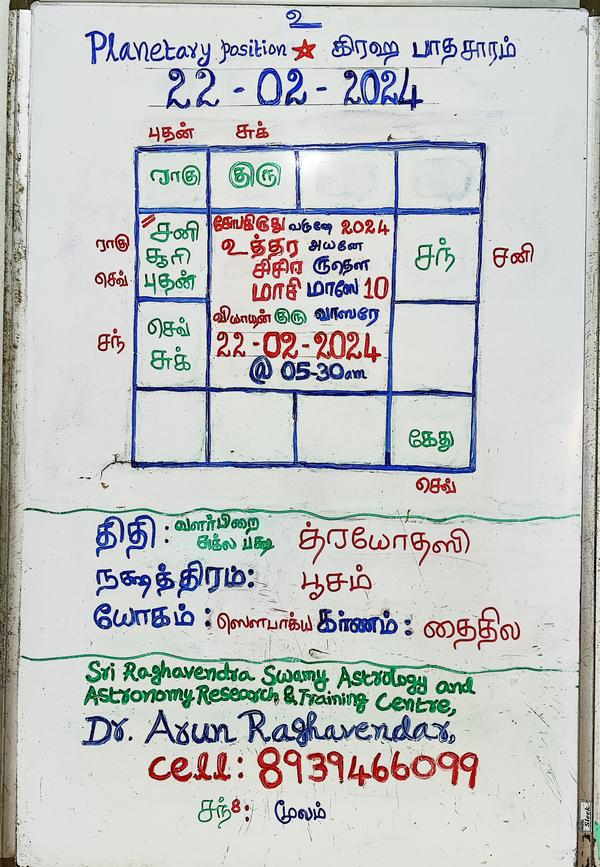 உ
Planetary position ★ கிரஹ பாதசாரம்
22-02-2024
புதன் சுக்
ராகு குரு
ராகு சனி சோபகிருது வருஷே 2024
சூரி உத்தர அயனே சந் சனி
செவ் புதன் சிசிர ருதௌ
மாசி மாஸே 10
செவ் வியாழன் குரு வாஸரே
சந் சுக் 22-02-2024
@ 05-30am
கேது
செவ்
திதி: வளர்பிறை சுக்ல பக்ஷ த்ரயோதஸி
நக்ஷத்திரம்: பூசம்
யோகம்: ஸௌபாக்ய கர்ணம்: தைதில
Sri Raghavendra Swamy Astrology and
Astronomy Research & Training Centre,
Dr. Arun Raghavendar,
Cell: 8939466099
சந்8: மூலம்